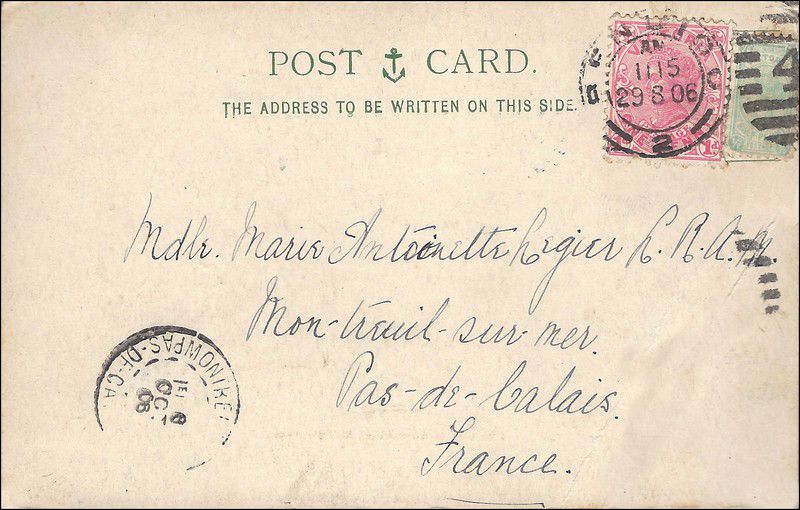 POST CARD.
THE ADDRESS TO BE WRITTEN ON THIS SIDE.
AM
11 15
29 8 06
2
1d
4
Mdlr. Marie Antoinette Legier L.R.A.M.
Mon-treuil-sur-mer.
Pas-de-Calais.
France.
PAS-DE-CA